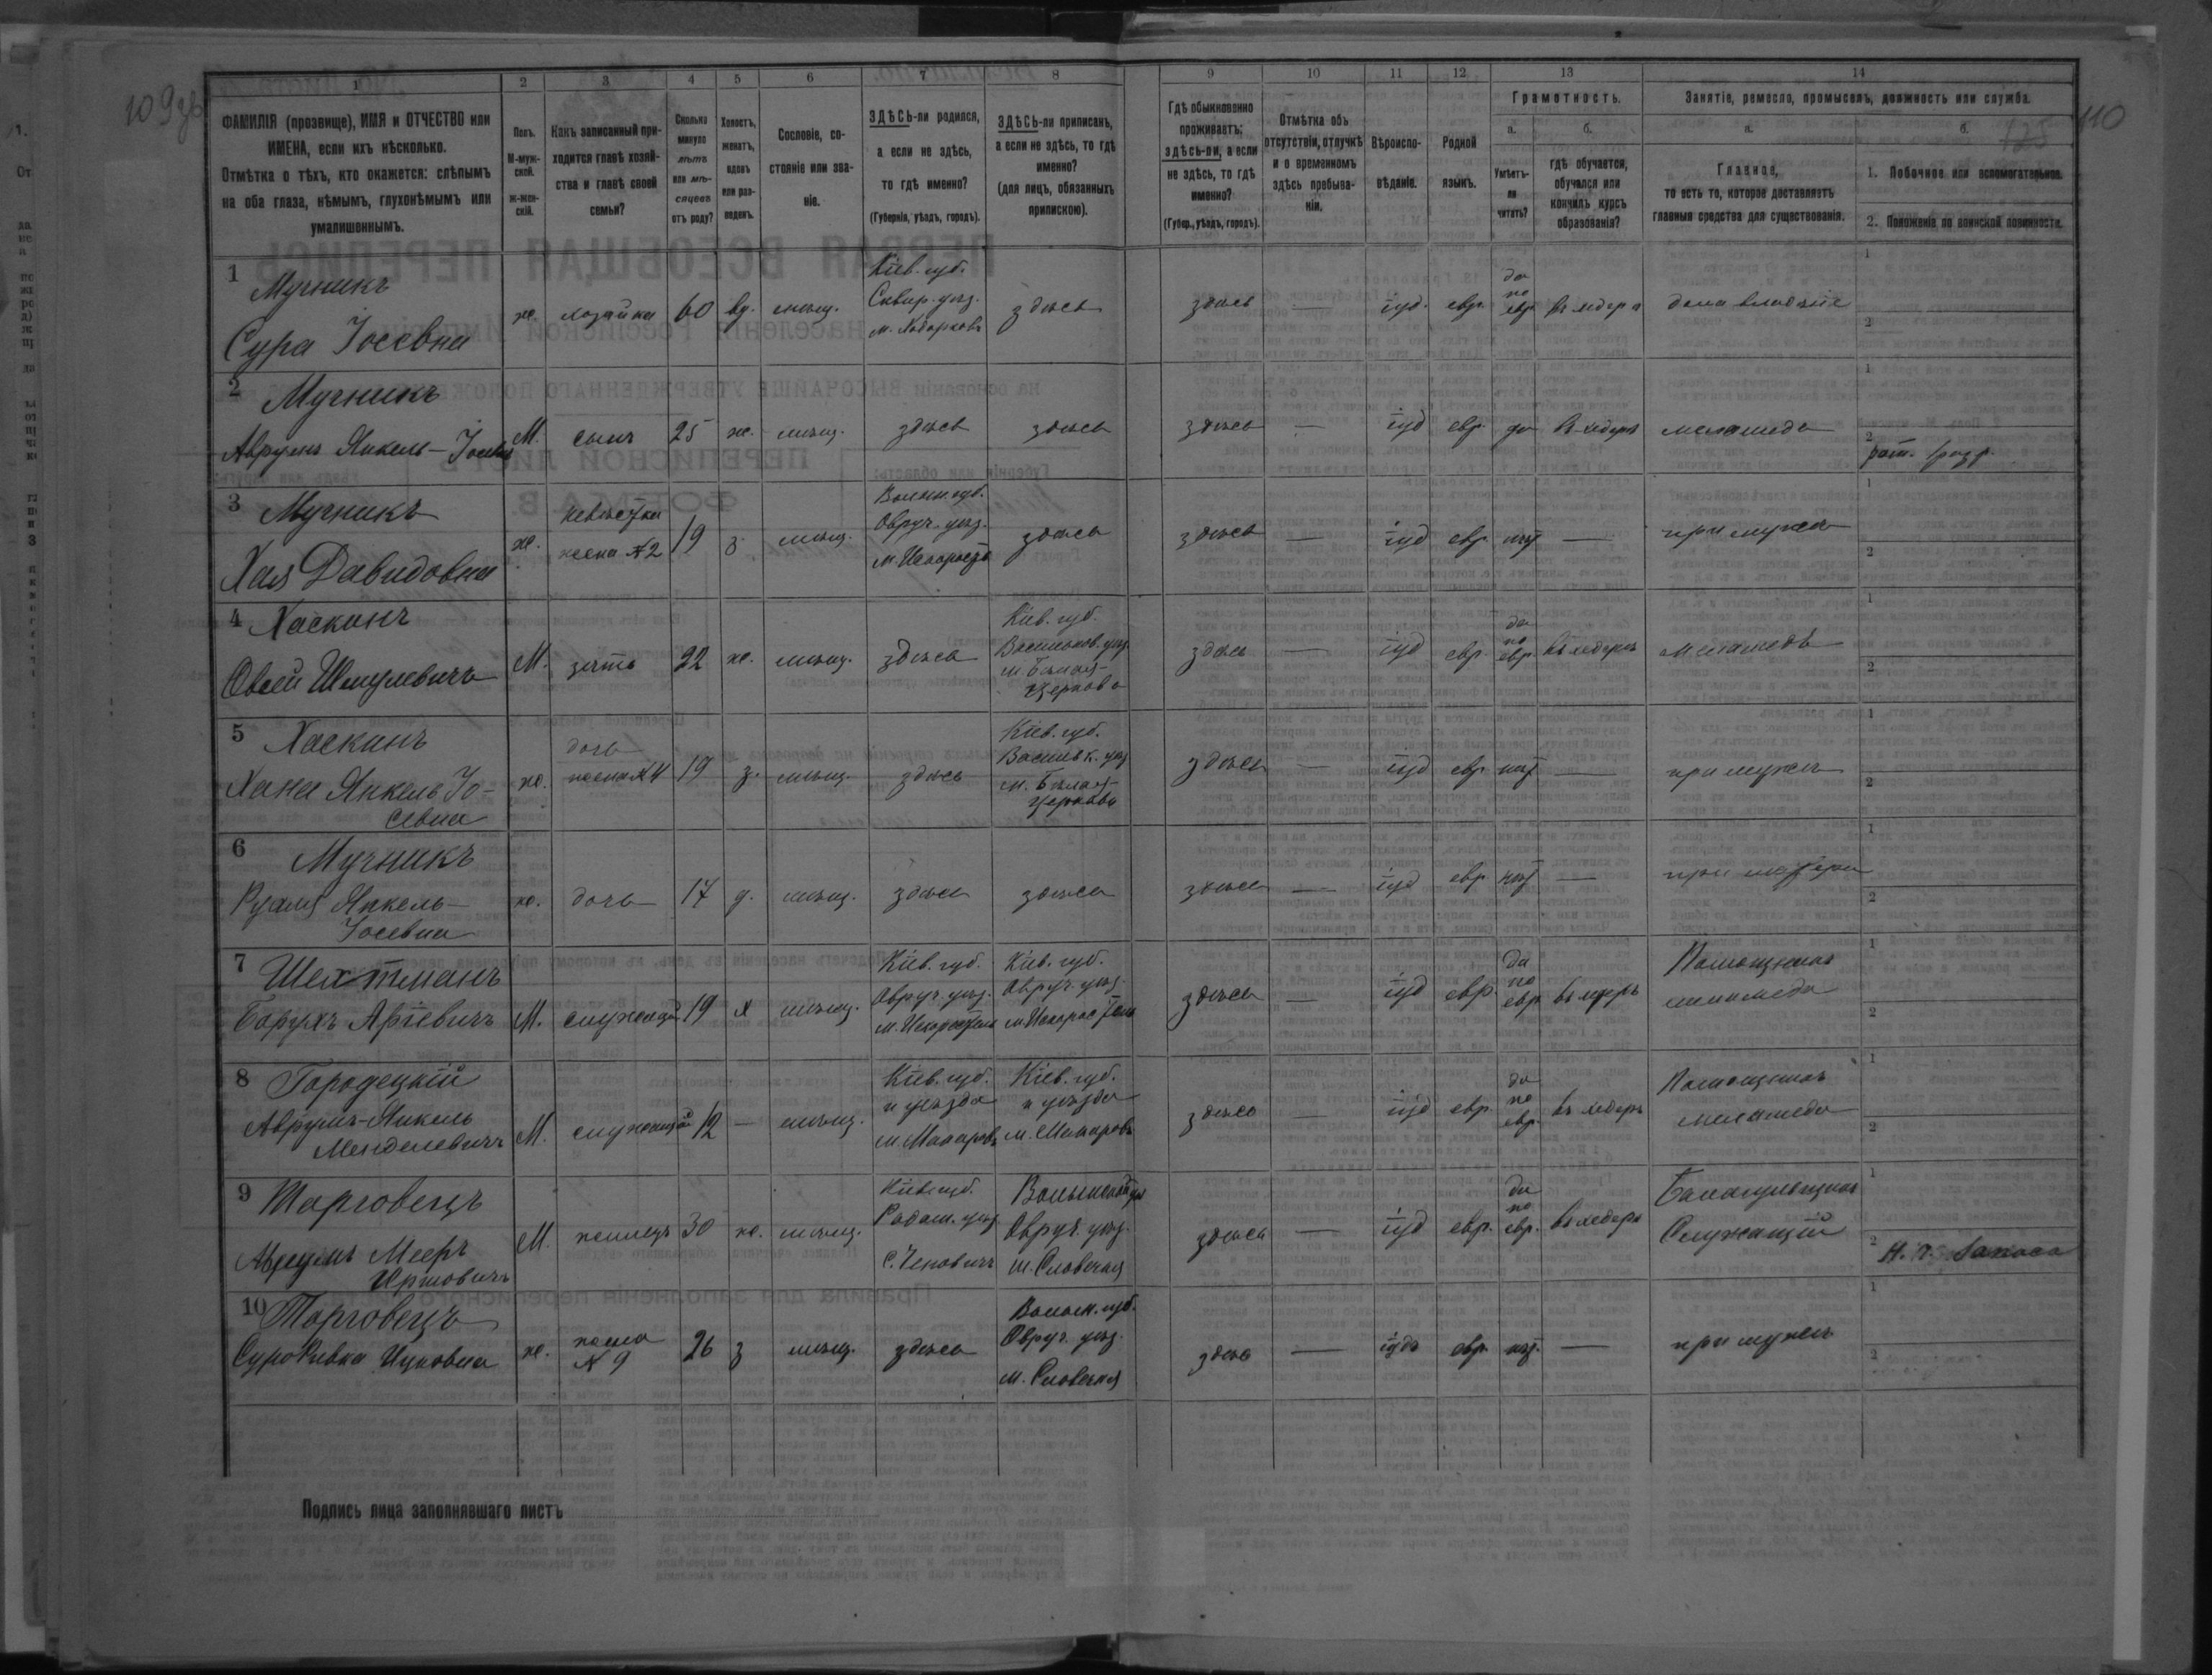 109 зв
110
125
1
2
3
4
5
6
7
8
9
10
11
12
13
14
ФАМИЛІЯ (прозвище), ИМЯ и ОТЧЕСТВО или
ИМЕНА, если ихъ нѣсколько.
Отмѣтка о тѣхъ, кто окажется: слѣпымъ
на оба глаза, нѣмымъ, глухонѣмымъ или
умалишеннымъ.
Полъ.
М-муж-
ской.
ж-жен-
скій.
Какъ записанный при-
ходится главѣ хозяй-
ства и главѣ своей
семьи?
Сколько
минуло
лѣтъ
или мѣ-
сяцевъ
отъ роду?
Холостъ,
женатъ,
вдовъ
или раз-
веденъ.
Сословіе, со-
стояніе или зва-
ніе.
ЗДѢСЬ-ли родился,
а если не здѣсь,
то гдѣ именно?
(Губернія, уѣздъ, городъ).
ЗДѢСЬ-ли приписанъ,
а если не здѣсь, то гдѣ
именно?
(для лицъ, обязанныхъ
припискою).
Гдѣ обыкновенно
проживаетъ:
здѣсь-ли, а если
не здѣсь, то гдѣ
именно?
(Губер., уѣздъ, городъ).
Отмѣтка объ
отсутствіи, отлучкѣ
и о временномъ
здѣсь пребыва-
ніи.
Вѣроиспо-
вѣданіе.
Родной
языкъ.
Грамотность.
а.
Умѣетъ-
ли
читать?
б.
гдѣ обучается,
обучался или
кончилъ курсъ
образованія?
Занятіе, ремесло, промыселъ, должность или служба.
а.
Главное,
то есть то, которое доставляетъ
главныя средства для существованія.
б.
1. Побочное или вспомогательное.
2. Положеніе по воинской повинности.
1 Мучникъ
Сура Іосевна
ж. хозяйка 60 вд. мѣщ.
Кіев. губ.
Сквир. уѣз.
м. Ходорковъ
здѣсь здѣсь — іуд. евр.
да
по
евр
въ хедерѣ
2 Мучникъ
Аврумъ Янкель-Іосев
М. сынъ 25 ж. мѣщ. здѣсь здѣсь здѣсь — іуд евр. да въ хедерѣ меламедъ
рат. 1 разр.
3 Мучникъ
Хая Давидовна
ж.
невѣстка
жена №2
19 з. мѣщ.
Волын. губ.
Овруч. уѣз.
м. Искорость
здѣсь здѣсь — іуд евр нѣт — при мужѣ
4 Хаскинъ
Овсей Шмулевичъ
М. зять 22 ж. мѣщ. здѣсь
Кіев. губ.
Васильков. уѣз.
м. Бѣлая-
Церковь
здѣсь — іуд евр.
да
по
евр.
въ хедерѣ меламедъ
5 Хаскинъ
Хана Янкель Іо-
севна
ж.
дочь
жена №4
19 з. мѣщ. здѣсь
Кіев. губ.
Васильк. уѣз
м. Бѣлая
Церковь
здѣсь — іуд евр нѣт — при мужѣ
6 Мучникъ
Янкель-
Іосевна
ж. дочь 17 д. мѣщ. здѣсь здѣсь здѣсь — іуд евр нѣт — при матери
7 Шехтманъ
Борухъ Аріевичъ
М. служащій 19 х мѣщ.
Кіев. губ.
Овруч. уѣз.
м. Искоростень
Кіев. губ.
Овруч. уѣз.
м. Искоростень
здѣсь — іуд евр.
да
по
евр
въ хедерѣ
Помощникъ
меламеда
8 Городецкій
Аврумъ-Янкель
Менделевичъ
М. служащій 12 — мѣщ.
Кіев. губ.
и уѣзда
м. Макаровъ
Кіев. губ.
и уѣзда
м. Макаровъ
здѣсь — іуд евр.
да
по
евр.
въ хедерѣ
Помощникъ
меламеда
9 Торговецъ
Аврумъ Мееръ
Иршовичъ
М. жилецъ 30 ж. мѣщ.
Кіев. губ.
Радом. уѣз.
Волынской губ
Овруч. уѣз.
м. Словечна
здѣсь — іуд евр.
да
по
евр.
въ хедерѣ
Служащій
Н. ч. запаса
10 Торговецъ
Сура Ривка Ицковна
ж.
жена
№ 9
26 з мѣщ. здѣсь
Волын. губ.
Овруч. уѣз.
м. Словечна
здѣсь — іудъ евр. нѣт. — при мужѣ
Подпись лица заполнявшаго листъ